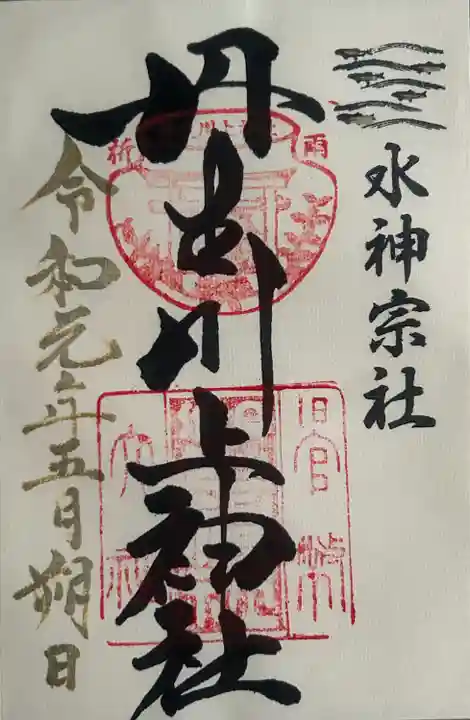 水神宗社
丹生川上神社
令和元年五月朔日
雨
祈
旧官幣
大社